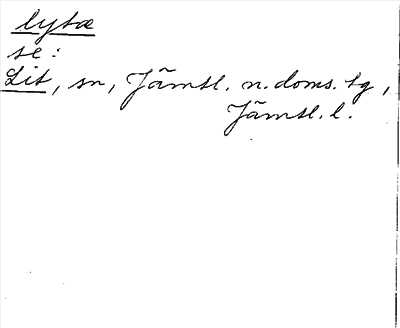 lytæ
se:
Lit, sn, Jämtl. n. doms. tg,
Jämtl. l.